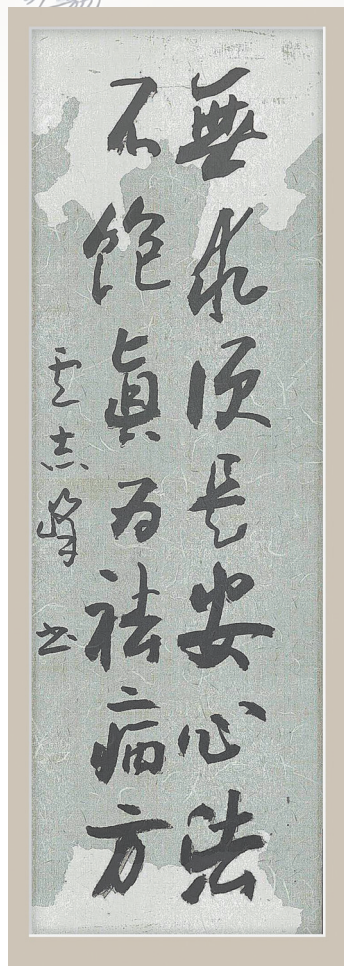 無求便是安心法
不飽真为祛病方
志峰书